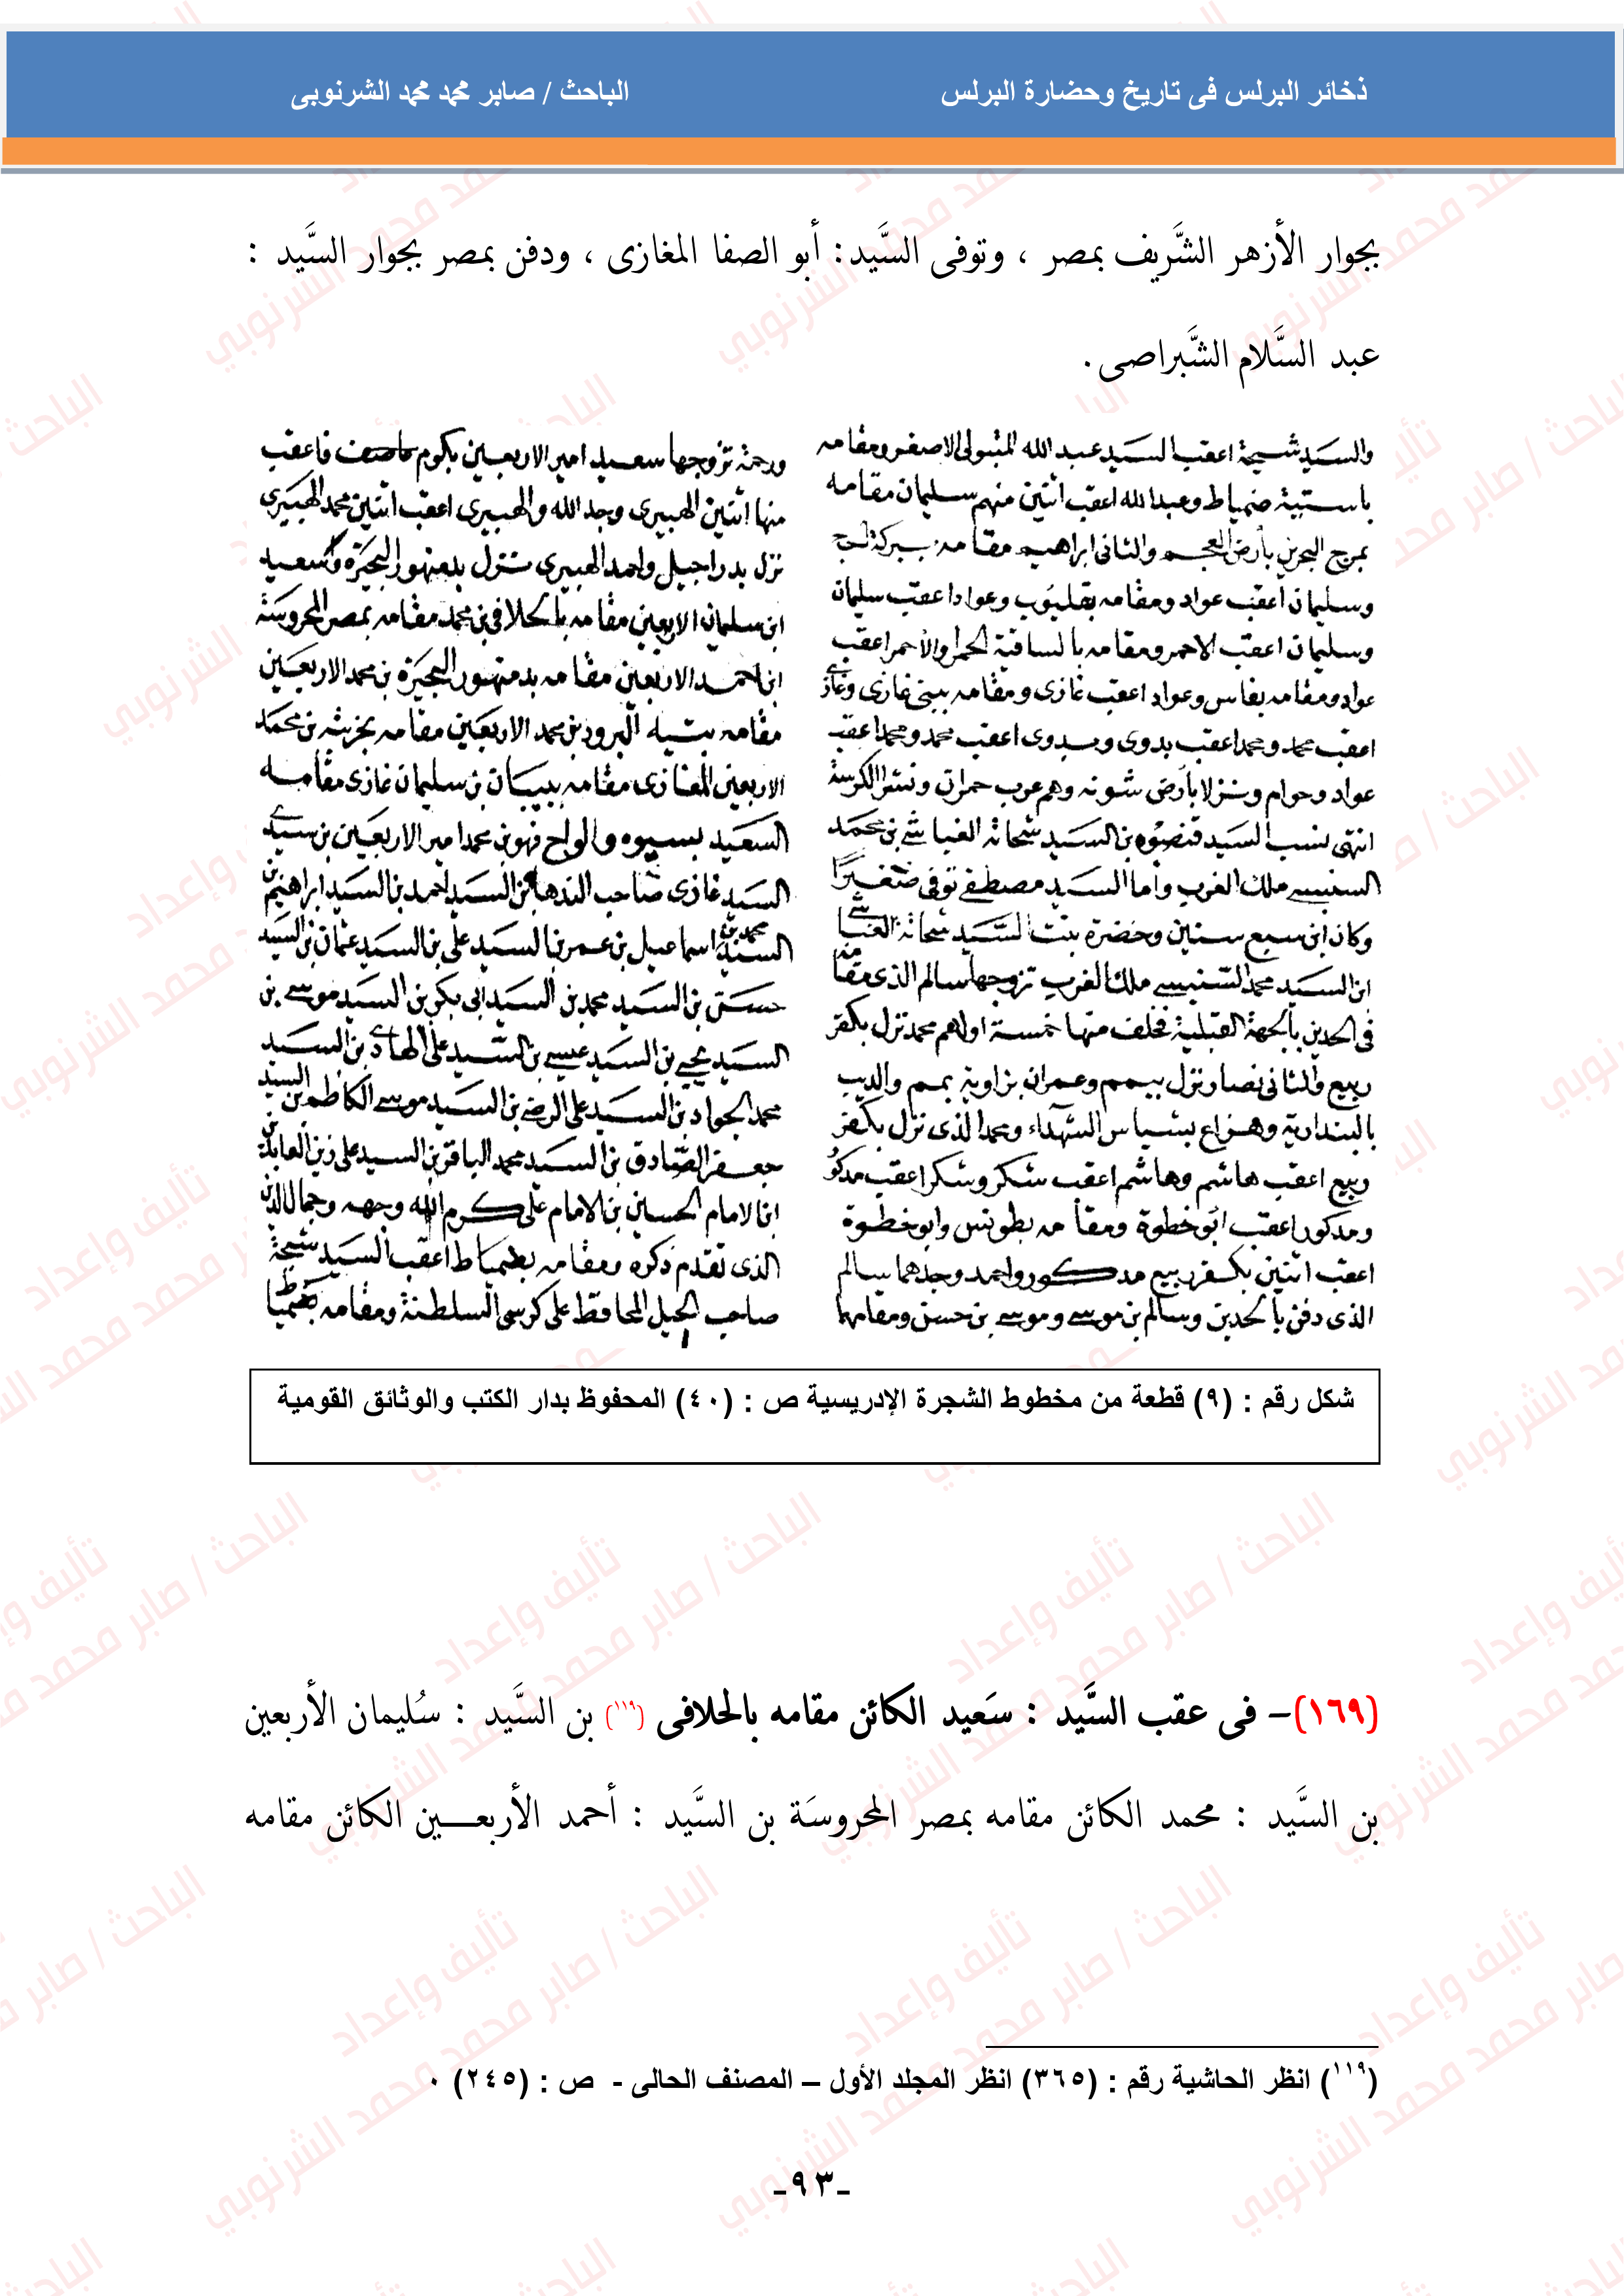 ذخائر البرلس فى تاريخ وحضارة البرلس
الباحث / صابر محمد محمد الشرنوبى
بجوار الأزهر الشَّريف بمصر ، وتوفى السَّيد : أبو الصفا المغازى ، ودفن بمصر بجوار السَّيد :
عبد السَّلام الشَّبراصى .
والسيد شيحة اعقب السيد عبد الله المتبولى الاصغر ومقامه
باستبية ضمياط وعبد الله اعقب اثنين منهم سليمان مقامه
بمرج البحرين بأرض العجم والثانى ابراهيم مقامه ببركة الحج
وسليمان اعقب عواد ومقامه بقليوب وعواد اعقب سليمان
وسليمان اعقب الاحمر ومقامه بالساقية الحمرا والأحمر اعقب
عواد ومقامه بفاس وعواد اعقب غازى ومقامه ببنى غازى وغازى
اعقب محمد ومحمد اعقب بدوى وبدوى اعقب محمد ومحمد اعقب
عواد وحوام ونزلا بأرض شونه وهم عرب حمران
انتهى نسب السيد قنصوه بن السيد شحاته الغباشى بن محمد
السنيسى ملك الغرب وأما السيد مصطفى توفى صغيرا
وكان ابن سبع سنين وخضرة بنت السيد شحاته الغباشى
ابن السيد محمد السنيسى ملك الغرب تزوجها سالم الذى مقامه
فى الحدين بالجهة القبلية فخلف منها خمسة اولهم محمد نزل بكفر
ربيع والثانى نصار نزل بيمم وعمران بزاوية بمم والديب
بالبندارية وهزاع بشباس الشهداء ومحمد الذى نزل بكفر
ربيع اعقب هاشم وهاشم اعقب شكر وشكر اعقب مدكور
ومدكور اعقب ابو خطوة ومقامه بطونس وابو خطوة
اعقب اثنين بكفر ربيع مدكور واحمد وجدهما سالم
الذى دفن بالحدين وسالم بن موسى وموسى بن حسن ومقامهما
ورحمة تزوجها سعيد امير الاربعين بكوم فاعقب
منها اثنين الهبيرى وجد الله والهبيرى اعقب اثنين محمد الهبيرى
نزل بدراجيل واحمد الهبيرى نزل بدمنهور البحيرة وسعيد
ابن سليمان الاربعين مقامه بالحلافى بن محمد مقامه بمصر المحروسة
ابن احمد الاربعين مقامه بدمنهور البحيرة بن محمد الاربعين
مقامه بتيه البرود بن محمد الاربعين مقامه بخربته بن محمد
الاربعين المغازى مقامه ببيبان بن سليمان غازى مقامه
السعيد بسيوه والواح فهو بن محمد امير الاربعين بن سيدى
السيد غازى صاحب الندهة بن السيد احمد بن السيد ابراهيم بن
السيد محمد بن اسماعيل بن عمر بن السيد على بن السيد عثمان بن السيد
حسن بن السيد محمد بن السيد ابى بكر بن السيد موسى بن
السيد يحيى بن السيد عيسى بن السيد على الهادى بن السيد
محمد الجواد بن السيد على الرضى بن السيد موسى الكاظم بن السيد
جعفر الصادق بن السيد محمد الباقر بن السيد على زين العابدين
ابن الامام الحسين بن الامام على كرم الله وجهه وجمال الدين
الذى تقدم ذكره ومقامه بضمياط اعقب السيد شيحة
صاحب الخيل المحافظ على كرسى السلطنة ومقامه بضمياط
شكل رقم : (٩) قطعة من مخطوط الشجرة الإدريسية ص : (٤٠) المحفوظ بدار الكتب والوثائق القومية
(١٦٩)– فى عقب السَّيد : سَعيد الكائن مقامه بالحلافى (١١٩) بن السَّيد : سُليمان الأربعين
بن السَّيد : محمد الكائن مقامه بمصر المحروسَة بن السَّيد : أحمد الأربعـــين الكائن مقامه
(١١٩) انظر الحاشية رقم : (٣٦٥) انظر المجلد الأول – المصنف الحالى - ص : (٢٤٥) ٠
-٩٣-